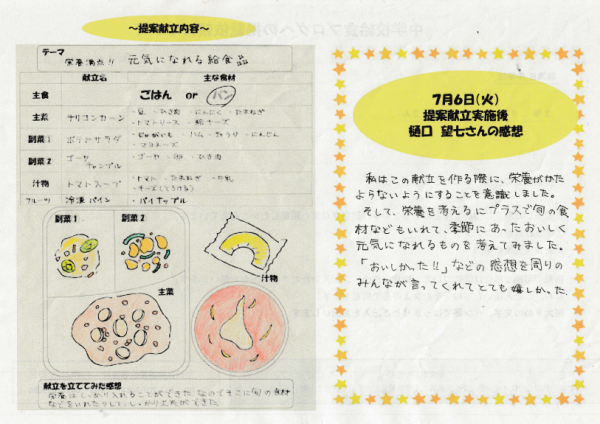 ～提案献立内容～
テーマ
栄養満点!! 元気になれる給食
献立名 主な食材
主食 ごはん or パン
主菜 チリコンカーン ・豆 ・ひき肉 ・にんにく ・たまねぎ
・トマトソース ・粉チーズ
副菜1 ポテトサラダ ・じゃがいも ・ハム ・きゅうり ・にんじん
・マヨネーズ
副菜2 ゴーヤチャンプル ・ゴーヤ ・卵 ・ひき肉
汁物 トマトスープ ・トマト ・たまねぎ
・チーズ(とろける)
フルーツ 冷凍パイン ・パイナップル
副菜1 副菜2
汁物
主菜
献立を立ててみた感想
栄養はしっかり入れることができた。なのでそこに旬の食材
などをいれたりし
7月6日(火)
提案献立実施後
樋口 望七さんの感想
私はこの献立を作る際に、栄養がかた
よらないようにすることを意識しました。
そして、栄養を考えるにプラスで旬の食
材などもいれて、季節にあったおいしく
元気になれるものを考えてみました。
「おいしかった!!」などの感想を周りの
みんなが言ってくれてとても嬉しかった。